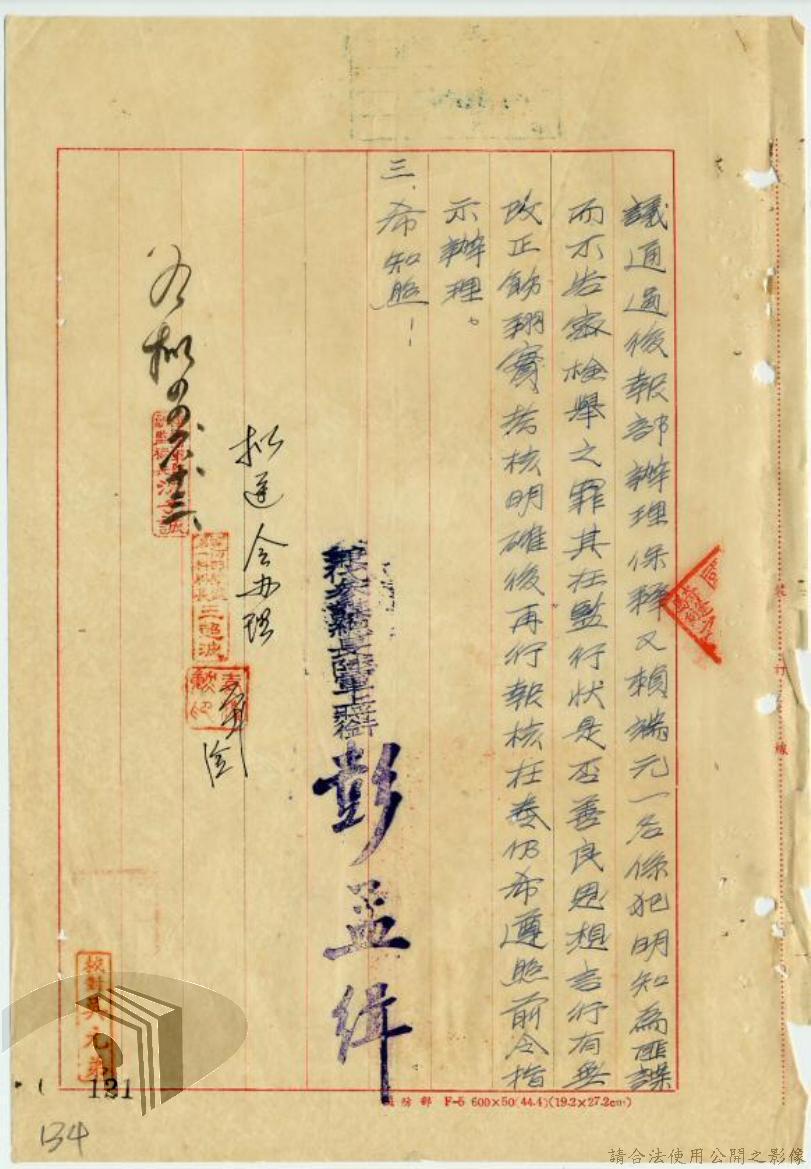 議通過後報部辦理保釋又賴瑞元一名係犯明知為匪諜
而不告密檢舉之罪其在監行狀是否善良思想言行有無
改正飭翔實考核明確後再行報核在卷仍希遵照前令指
示辦理。
三、希知照!
兼代參謀總長陸軍二級上將
彭孟緝
擬遵令辦理
王超波
校對吳元
121
134
國防部 F-5 600×50(44.4)(19.2×27.2cm)
裝訂線
請合法使用公開之影像